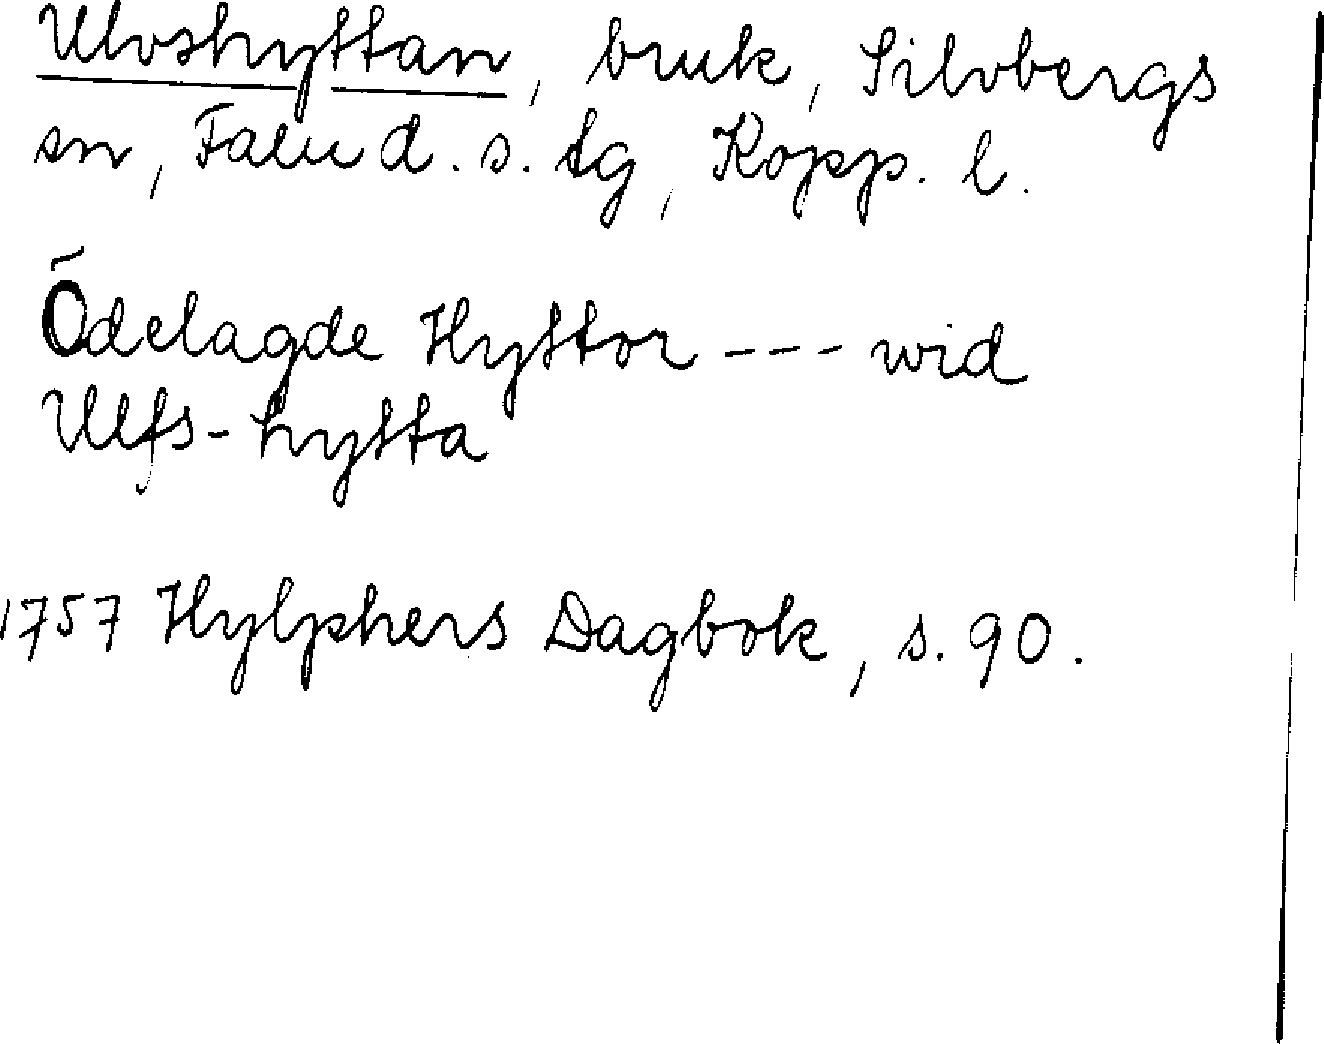 Ulvshyttan, bruk, Silvbergs
sn, Falu d. s. tg, Kopp. l.
Ödelagde Hyttor --- wid
Ulfs-hytta
1757 Hylphers Dagbok, s. 90.